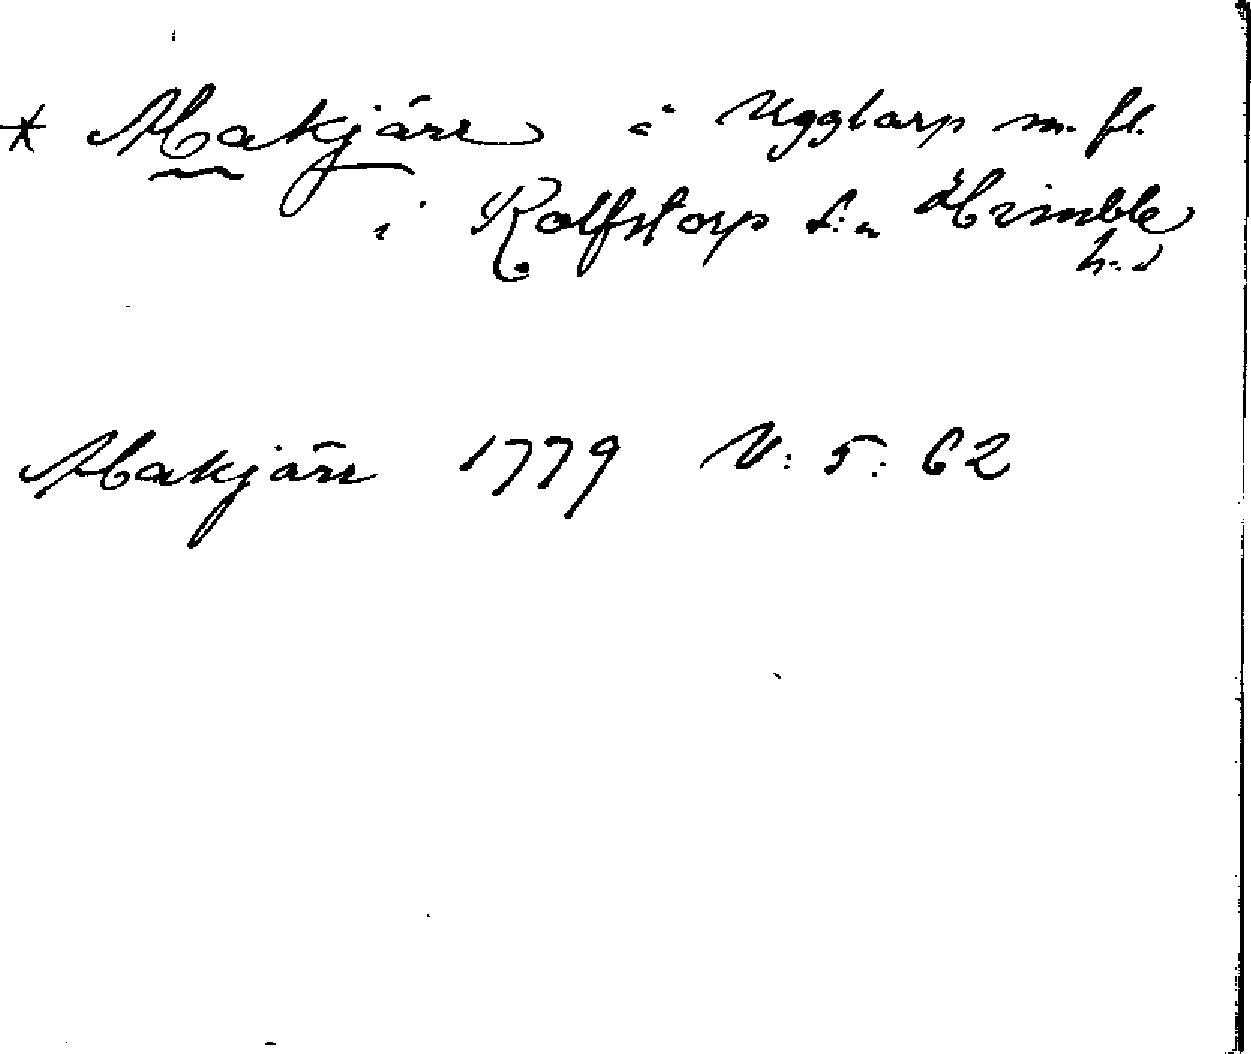 * Makjärr å Ugglarp m. fl.
i Rolfstorp s:n Himble
h:d
Makjärr 1779 V: 5: 62